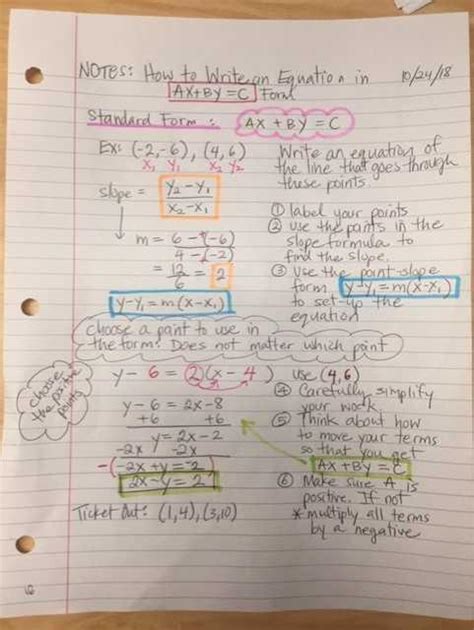 NOTES: How to Write an Equation in 10/24/18
AX+BY=C Form
Standard Form: AX + BY = C
Ex: (-2,-6), (4,6)
X₁ Y₁ X₂ Y₂
Write an equation of
the line that goes through
these points.
slope = y₂-y₁
x₂-x₁
① label your points
② use the points in the
slope formula to
find the slope.
m = 6-(-6)
4-(-2)
= 12 = 2
6
③ Use the point-slope
form y-y₁=m(x-x₁)
to set-up the
equation
y-y₁=m(x-x₁)
choose a point to use in
the form. Does not matter which point
choose
the positive
points
y - 6 = 2(x - 4) use (4,6)
④ Carefully simplify
your work
y - 6 = 2x-8
+6 +6
y = 2x - 2
-2x -2x
-(-2x+y=-2)
2x-y=2
⑤ Think about how
to move your terms
so that you get
AX+BY=C
⑥ Make sure A is
positive. If not
*multiply all terms
by a negative
Ticket Out: (1,4), (3,10)